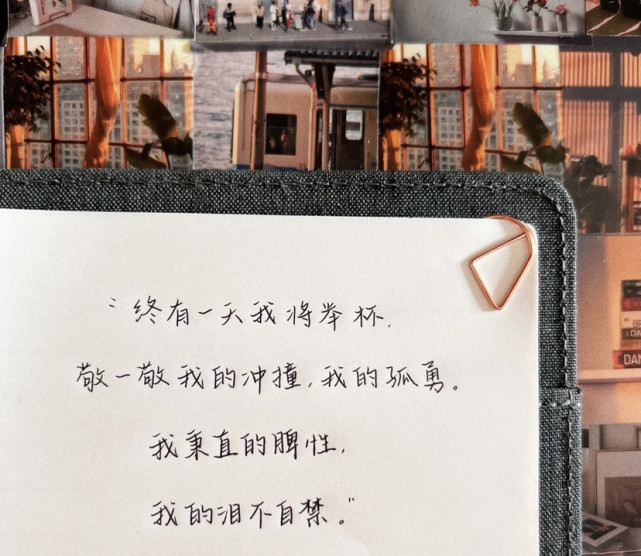 “终有一天我将举杯,
敬一敬我的冲撞,我的孤勇。
我秉直的脾性,
我的泪不自禁。”
DAN